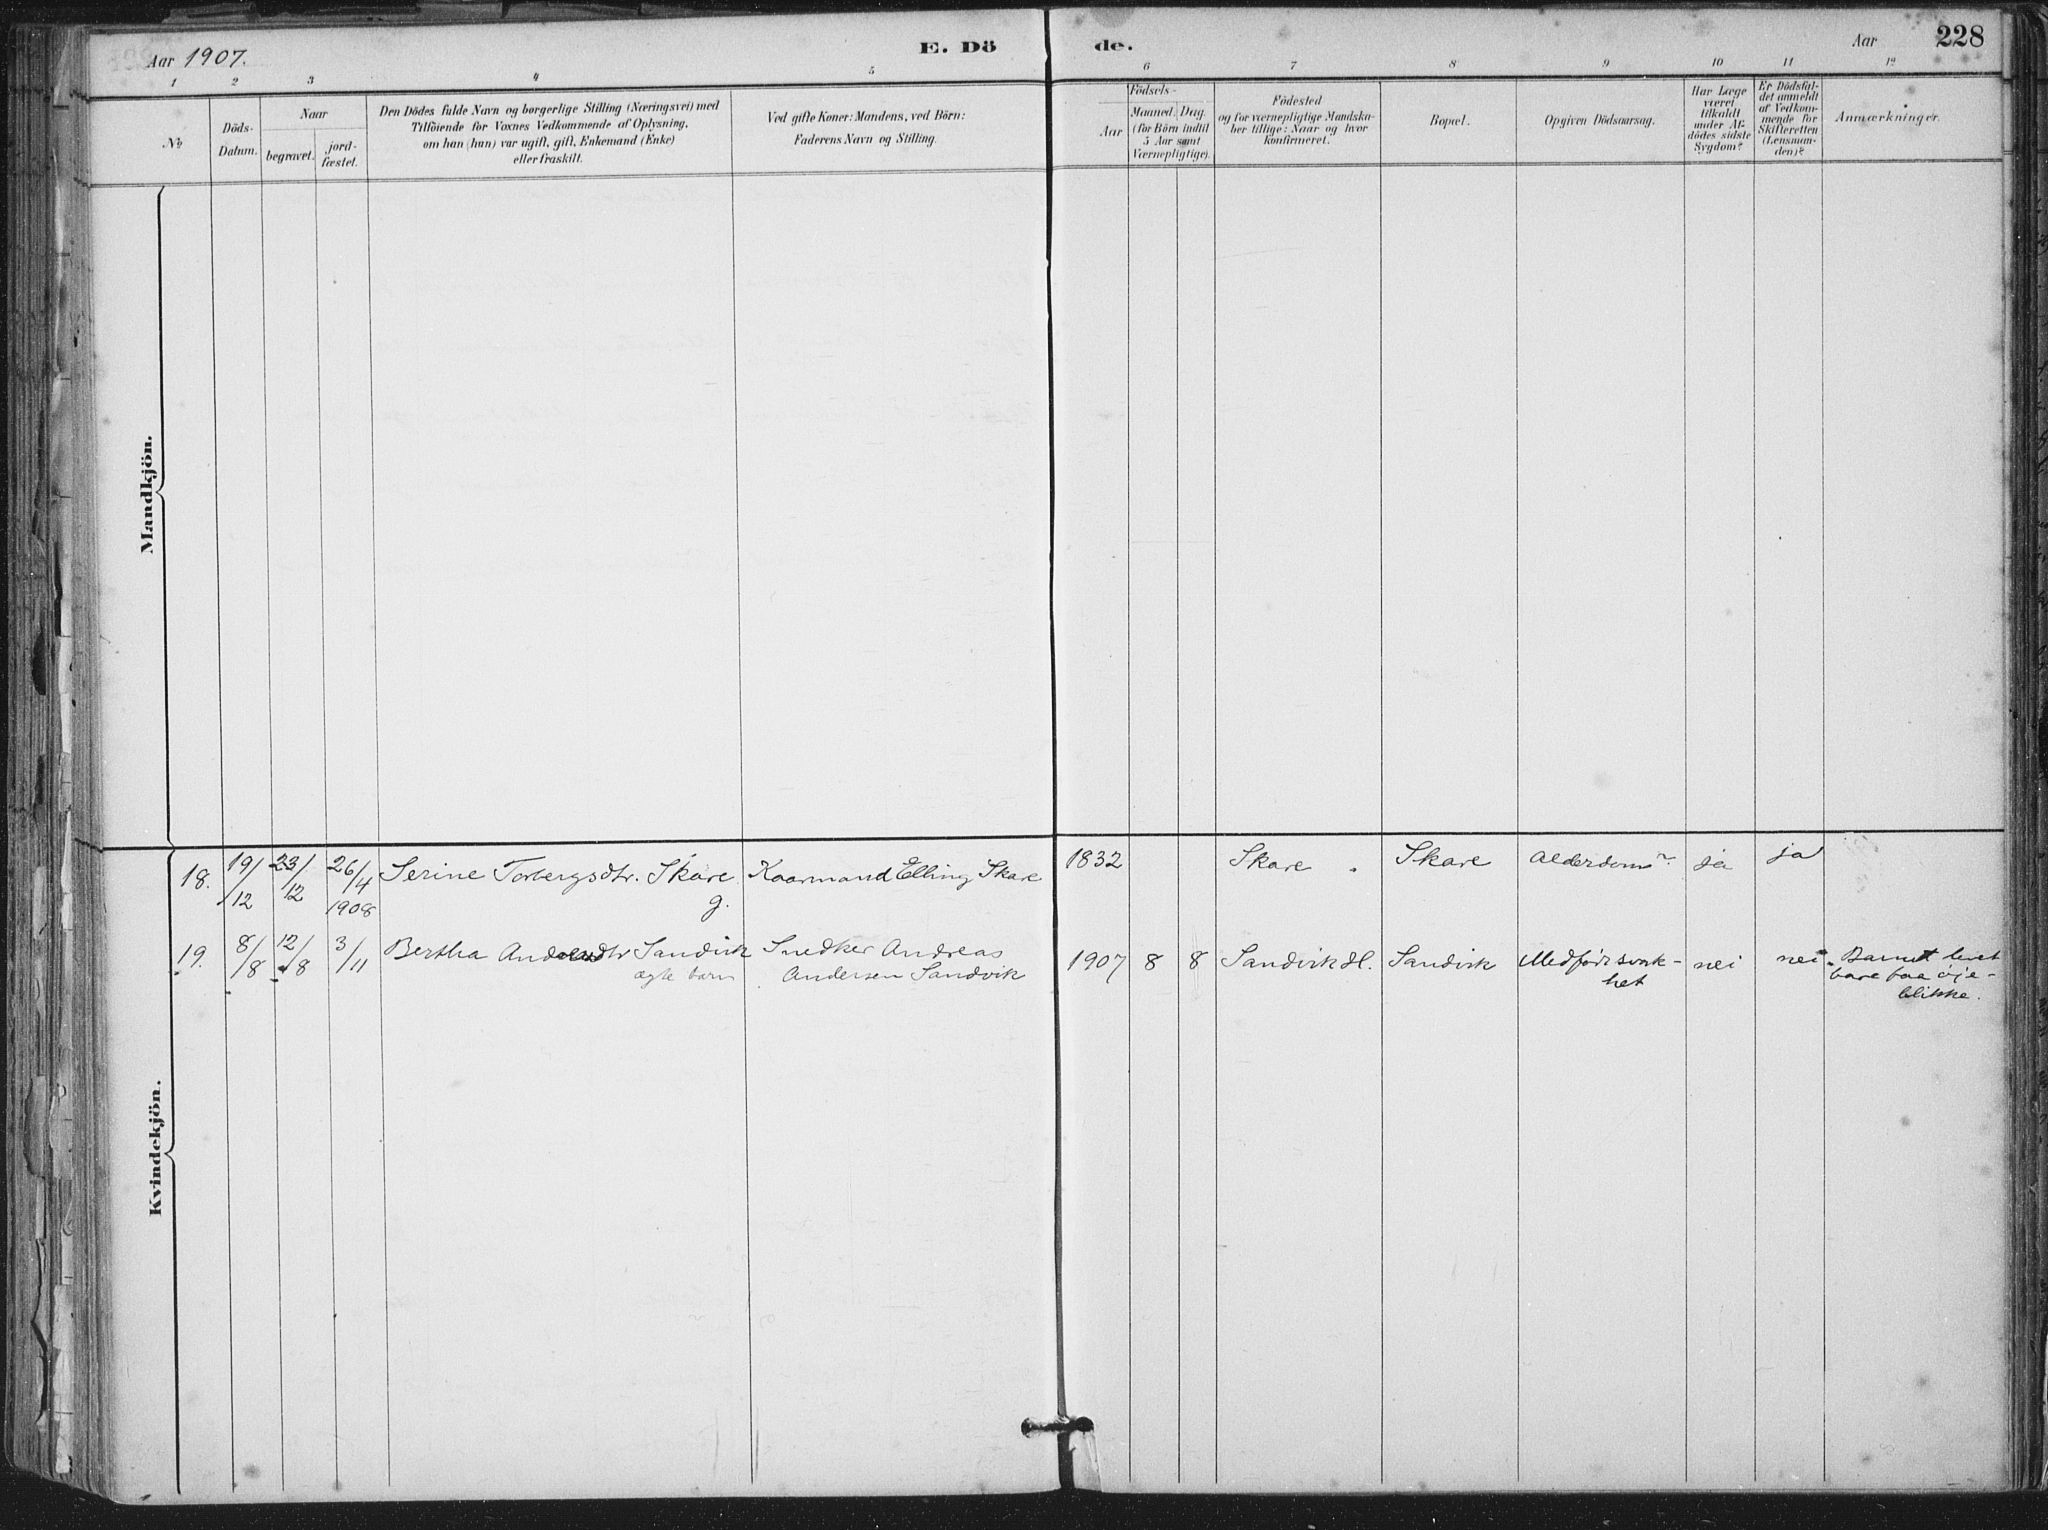 Aar 1907. E. Dö de. Aar 228
1 2 3 4 5 6 7 8 9 10 11 12
No
Döds-
Datum.
Naar
begravet.
jord-
fæstet.
Den Dödes fulde Navn og borgerlige Stilling (Næringsvei) med
Tilföiende for Voxnes Vedkommende af Oplysning,
om han (hun) var ugift, gift, Enkemand (Enke)
eller fraskilt.
Ved gifte Koner: Mandens, ved Börn:
Faderens Navn og Stilling.
Födsels-
Aar
Maaned. Dag.
(for Börn indtil
5 Aar samt
Værnepligtige).
Födested
og for værnepligtige Mandska-
ber tillige: Naar og hvor
konfirmeret.
Bopæl.
Opgiven Dödsaarsag.
Har Læge
været
tilkaldt
under Af-
dödes sidste
Sygdom?
Er Dödsfal-
det anmeldt
af Vedkom-
mende for
Skifteretten
(Lensman-
den)?
Anmærkninger.
Mandkjön.
Kvindekjön.
18. 19/12 23/12 26/4 1908 Serine Torbergsdtr. Skare g. Kaarmand Elling Skare 1832 Skare Skare Alderdom ja ja
19. 8/8 12/8 3/11 Bertha Sandvik Snedker Andreas 1907 8 8 Sandvik Sandvik Medfødt svak- nei nei Barnet levet
ægte barn Andersen Sandvik het bare faa øje-
blikke.